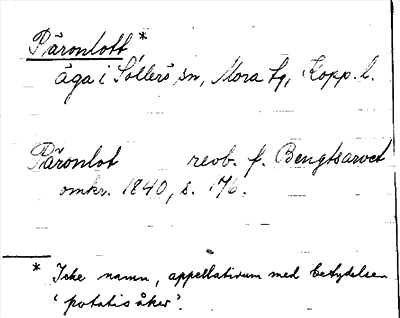 Päronlott *
äga i Sollerö sn, Mora tg, Kopp. l.
Päronlot reob. f. Bengtsarvet
omkr. 1840, s. 176.
* Icke namn, appellativum med betydelsen
'potatisåker'.